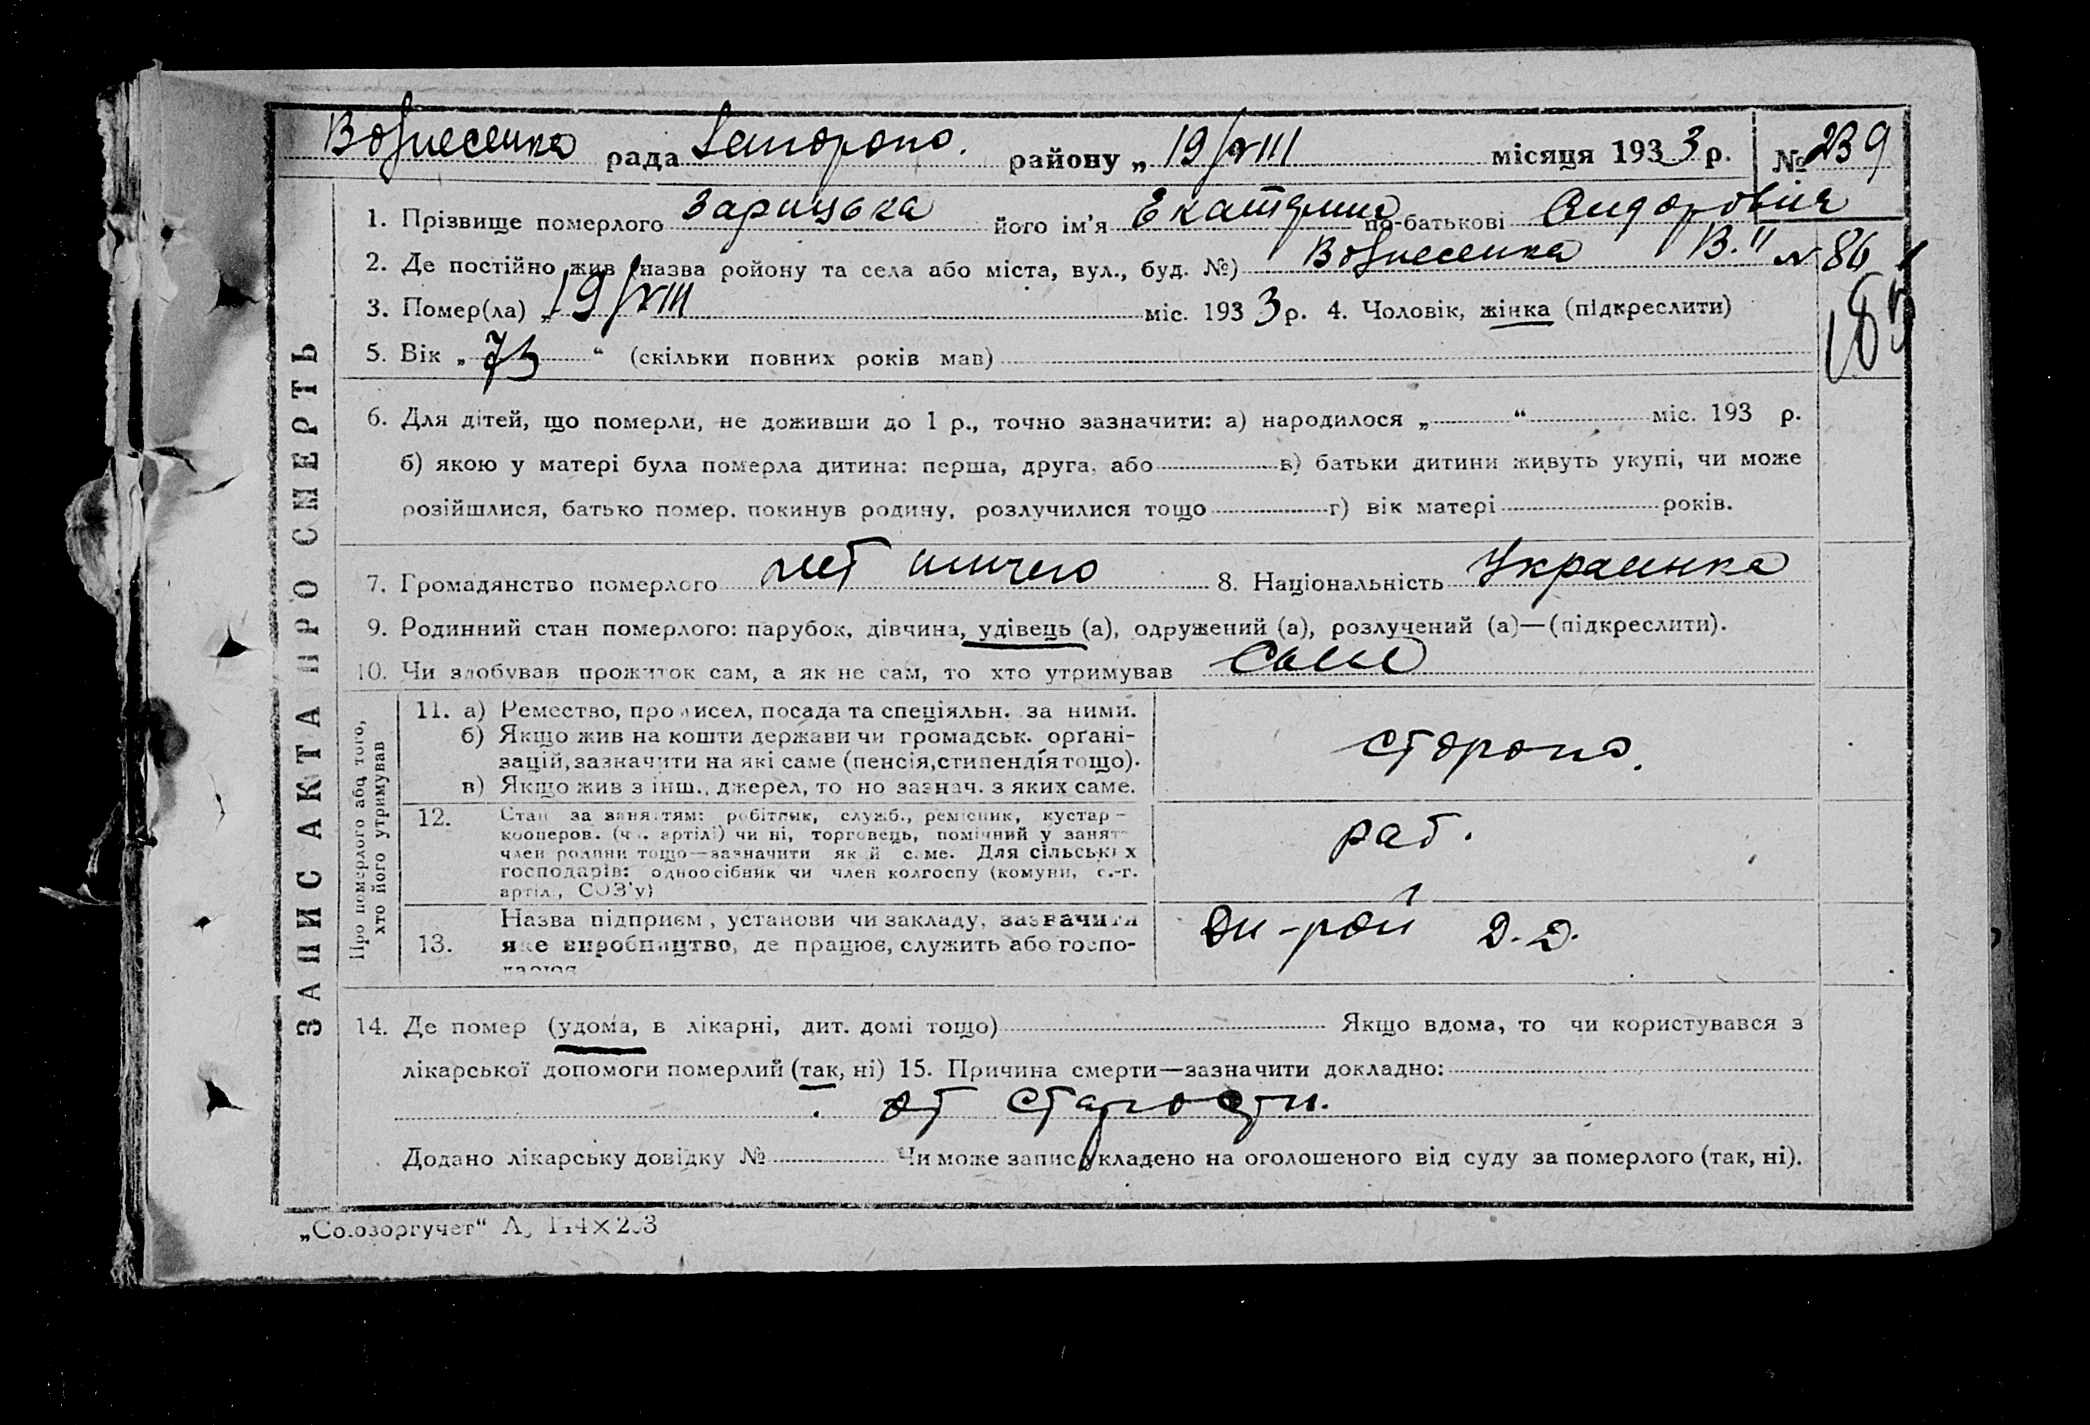 Вознесенка рада Запорожо. району „ 19/VIII місяця 1933 р. № 239
1. Прізвище померлого Зарицька його ім'я Екатерина по-батькові Сидоровна
2. Де постійно жив (назва ройону та села або міста, вул., буд. №) Вознесенка В. II № 86
3. Помер(ла) „ 19/VIII міс. 1933 р. 4. Чоловік, жінка (підкреслити)
5. Вік „ 73 “ (скільки повних років мав)
6. Для дітей, що померли, не доживши до 1 р., точно зазначити: а) народилося „ “ міс. 193 р.
б) якою у матері була померла дитина: перша, друга, або в) батьки дитини живуть укупі, чи може
розійшлися, батько помер, покинув родину, розлучилися тощо г) вік матері років.
7. Громадянство померлого нет 8. Національність Украинка
9. Родинний стан померлого: парубок, дівчина, удівець (а), одружений (а), розлучений (а)—(підкреслити).
10. Чи здобував прожиток сам, а як не сам, то хто утримував сама
ЗАПИС АКТА ПРО СМЕРТЬ
Про померлого або того,
хто його утримував
11. а) Ремество, промисел, посада та спеціяльн. за ними.
б) Якщо жив на кошти держави чи громадськ. орґані-
зацій, зазначити на які саме (пенсія, стипендія тощо).
в) Якщо жив з інш., джерел, то но зазнач. з яких саме.
сторожо.
12. Стан за заняттям: робітник, служб., ремісник, кустар-
кооперов. (чл. артілі) чи ні, торговець, помічний у занят
член родини тощо—зазначити який саме. Для сільських
господарів: одноосібник чи член колгоспу (комуни, с.-г.
артіл., СОЗ'у)
раб.
13. Назва підприєм., установи чи закладу, зазначити
яке виробництво, де працює, служить або госпо-
дарює
Дн-рой Д.Д.
14. Де помер (удома, в лікарні, дит. домі тощо) Якщо вдома, то чи користувався з
лікарської допомоги померлий (так, ні) 15. Причина смерти—зазначити докладно:
от старости.
Додано лікарську довідку № Чи може запис укладено на оголошеного від суду за померлого (так, ні).
„Союзоргучет“